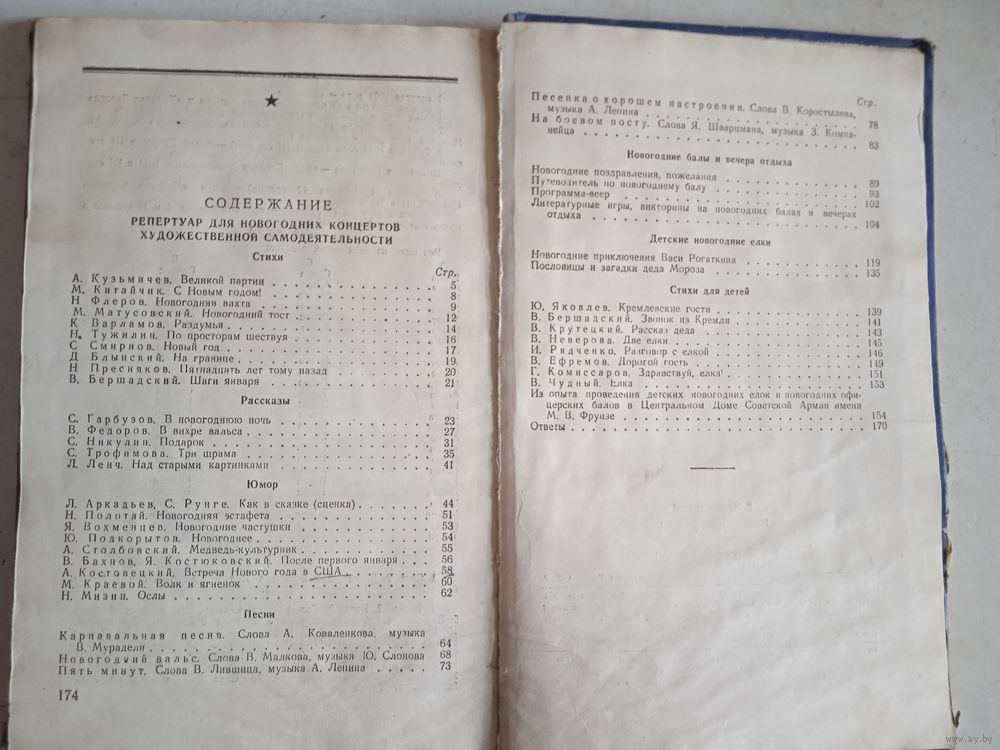 ★
СОДЕРЖАНИЕ
РЕПЕРТУАР ДЛЯ НОВОГОДНИХ КОНЦЕРТОВ
ХУДОЖЕСТВЕННОЙ САМОДЕЯТЕЛЬНОСТИ
Стихи
Стр.
А. Кузьмичев. Великой партии 5
М. Китайчик. С Новым годом! 8
Н Флеров. Новогодняя вахта 9
М. Матусовский. Новогодний тост 12
К Варламов. Раздумья 14
Н. Тужилин. По просторам шествуя 16
С Смирнов. Новый год 17
Д Блынский. На границе 19
Н Пресняков. Пятнадцать лет тому назад 20
В. Бершадский. Шаги января 21
Рассказы
С. Гарбузов. В новогоднюю ночь 23
В. Федоров. В вихре вальса 27
С. Никулин. Подарок 31
С. Трофимова. Три шрама 35
Л. Ленч. Над старыми картинками 41
Юмор
Л. Аркадьев, С. Рунге. Как в сказке (сценка) 44
Н. Полотай. Новогодняя эстафета 51
Я. Вохменцев. Новогодние частушки 53
Ю. Подкорытов. Новогоднее 54
А. Столбовский. Медведь-культурник 55
В. Бахнов, Я. Костюковский. После первого января 56
А. Костовецкий. Встреча Нового года в США 58
М. Краевой. Волк и ягненок 60
Н. Мизин. Ослы 62
Песни
Карнавальная песня. Слова А. Коваленкова, музыка
В. Мурадели 64
Новогодний вальс. Слова В. Малкова, музыка Ю. Слонова 68
Пять минут. Слова В. Лившица, музыка А. Лепина 73
174
Стр.
Песенка о хорошем настроении. Слова В. Коростылева,
музыка А. Лепина 78
На боевом посту. Слова Я. Шварцмана, музыка З. Компа-
нейца 83
Новогодние балы и вечера отдыха
Новогодние поздравления, пожелания 89
Путеводитель по новогоднему балу 93
Программа-веер 102
Литературные игры, викторины на новогодних балах и вечерах
отдыха 104
Детские новогодние елки
Новогодние приключения Васи Рогаткина 119
Пословицы и загадки деда Мороза 135
Стихи для детей
Ю. Яковлев. Кремлевские гости 139
В. Бершадский. Звонок из Кремля 141
В. Крутецкий. Рассказ деда 143
В. Неверова. Две елки 145
И. Рядченко. Разговор с елкой 146
В. Ефремов. Дорогой гость 149
Г. Комиссаров. Здравствуй, елка! 151
В. Чудный. Елка 153
Из опыта проведения детских новогодних елок и новогодних офи-
церских балов в Центральном Доме Советской Армии имени
М. В. Фрунзе 154
Ответы 170
www.ay.by